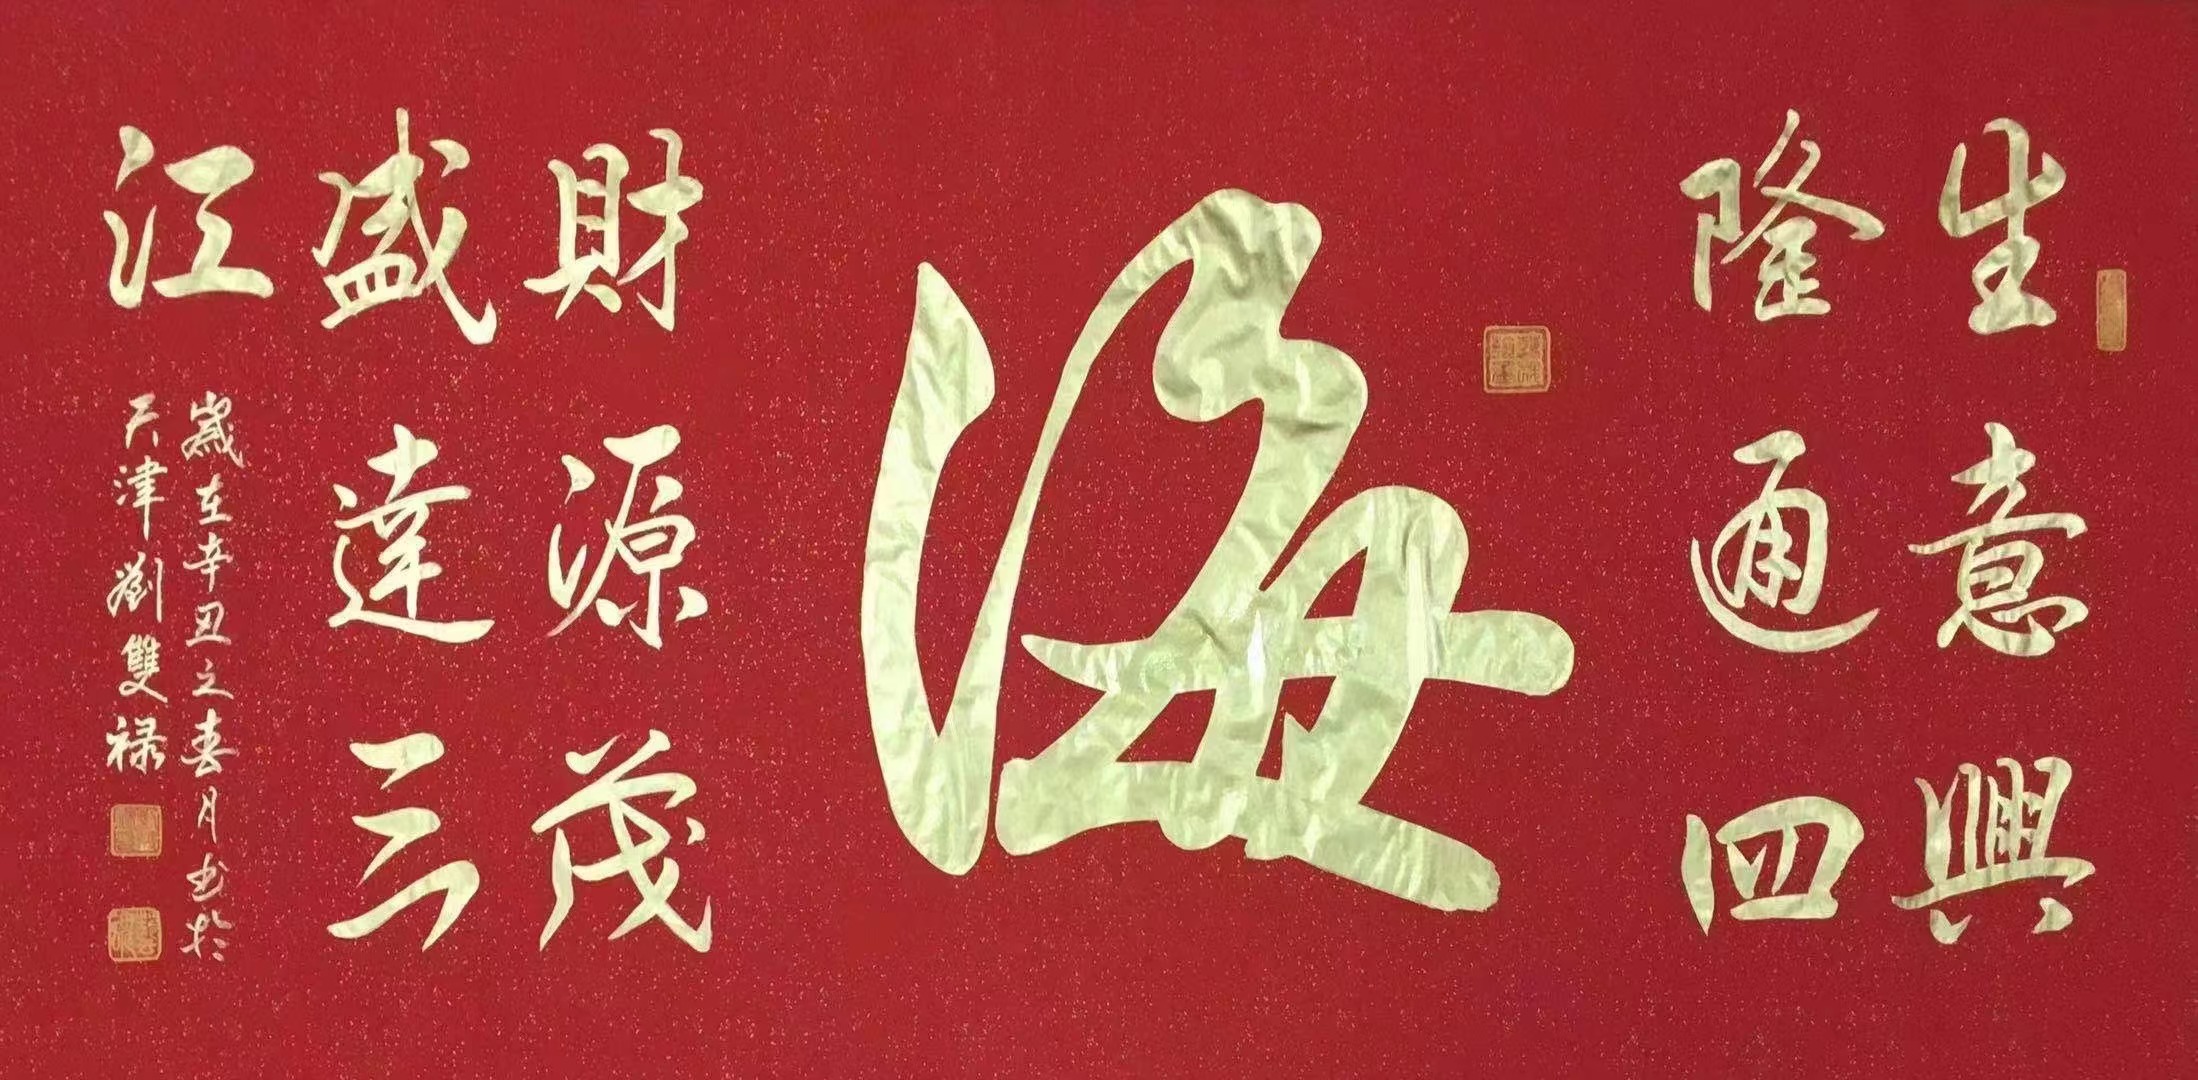 生意興
隆通四
海
財源茂
盛達三
江
歲在辛丑之春月书於
天津劉雙禄